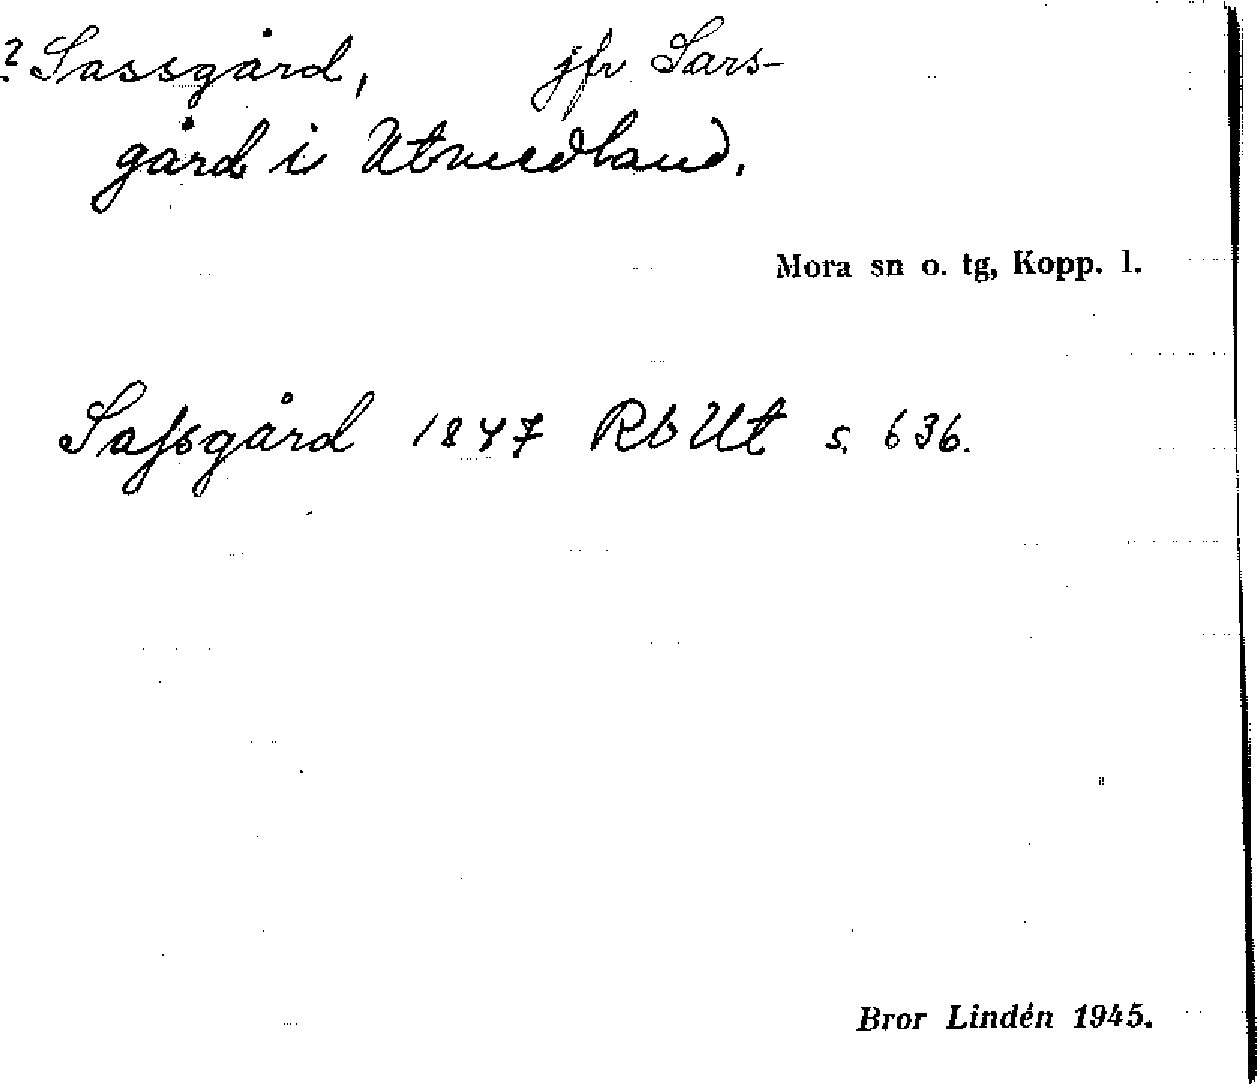 ? Sassgård, jfr Sars-
gård i Utmedland.
Mora sn o. tg, Kopp. l.
Saſsgård 1847 Rb Ut s. 636.
Bror Lindén 1945.